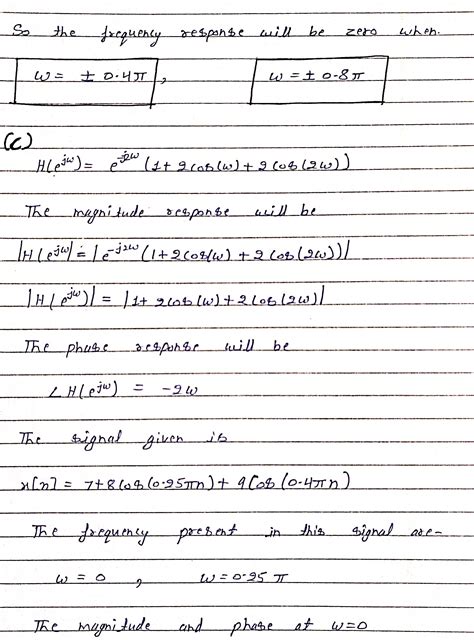 So the frequency response will be zero when.
ω = ± 0.4π , ω = ± 0.8π
(c)
H(e^jω) = e^-j2ω (1+2cos(ω)+2cos(2ω))
The magnitude response will be
|H(e^jω)| = |e^-j2ω (1+2cos(ω)+2cos(2ω))|
|H(e^jω)| = |1+2cos(ω)+2cos(2ω)|
The phase response will be
∠H(e^jω) = -2ω
The signal given is
x[n] = 7+8cos(0.25πn)+9cos(0.4πn)
The frequency present in this signal are-
ω = 0 , ω = 0.25π
The magnitude and phase at ω=0